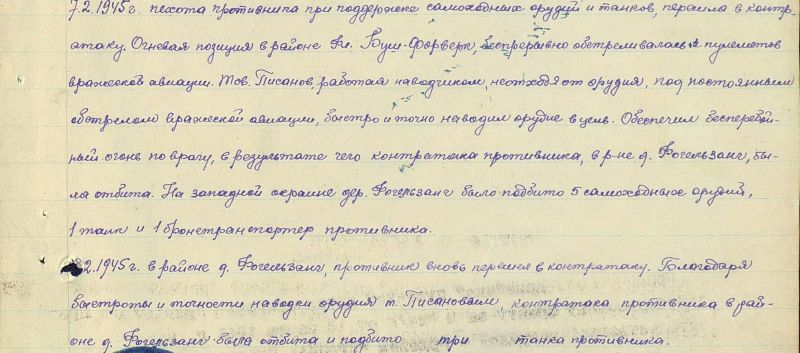 7.2.1945г. пехота противника при поддержке самоходных орудий и танков, перешла в контр-
атаку. Огневая позиция в районе Кл. Буш-Форверк, беспрерывно обстреливалась из пулеметов
вражеской авиации. Тов. Писанов, работая наводчиком, не отходя от орудия, под постоянным
обстрелом вражеской авиации, быстро и точно наводил орудие в цель. Обеспечил бесперебой-
ный огонь по врагу, в результате чего контратака противника, в р-не д. Фогельзанг, бы-
ла отбита. На западной окраине дер. Фогельзанг было подбито 5 самоходных орудий,
1 танк и 1 бронетранспортер противника.
2.1945г. в районе д. Фогельзанг, противник вновь перешел в контратаку. Благодаря
быстроты и точности наводки орудия т. Писановым, контратака противника в рай-
оне д. Фогельзанг была отбита и подбито три танка противника.